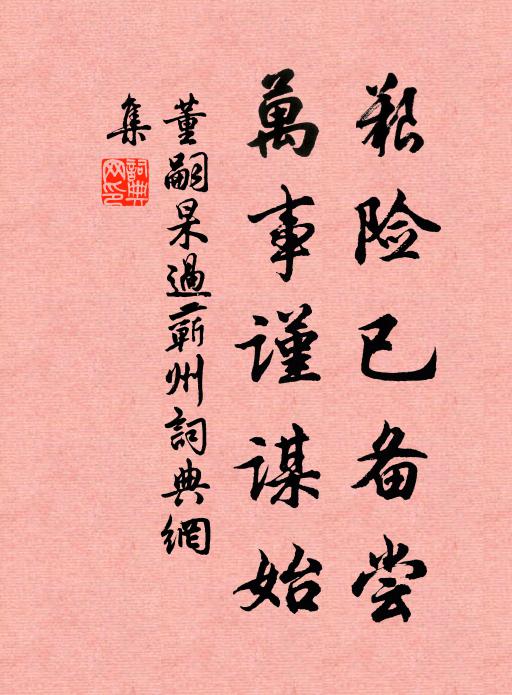 艰险已备尝
萬事谨谋始
董嗣杲過蘄州詞典網
集
詞典网印